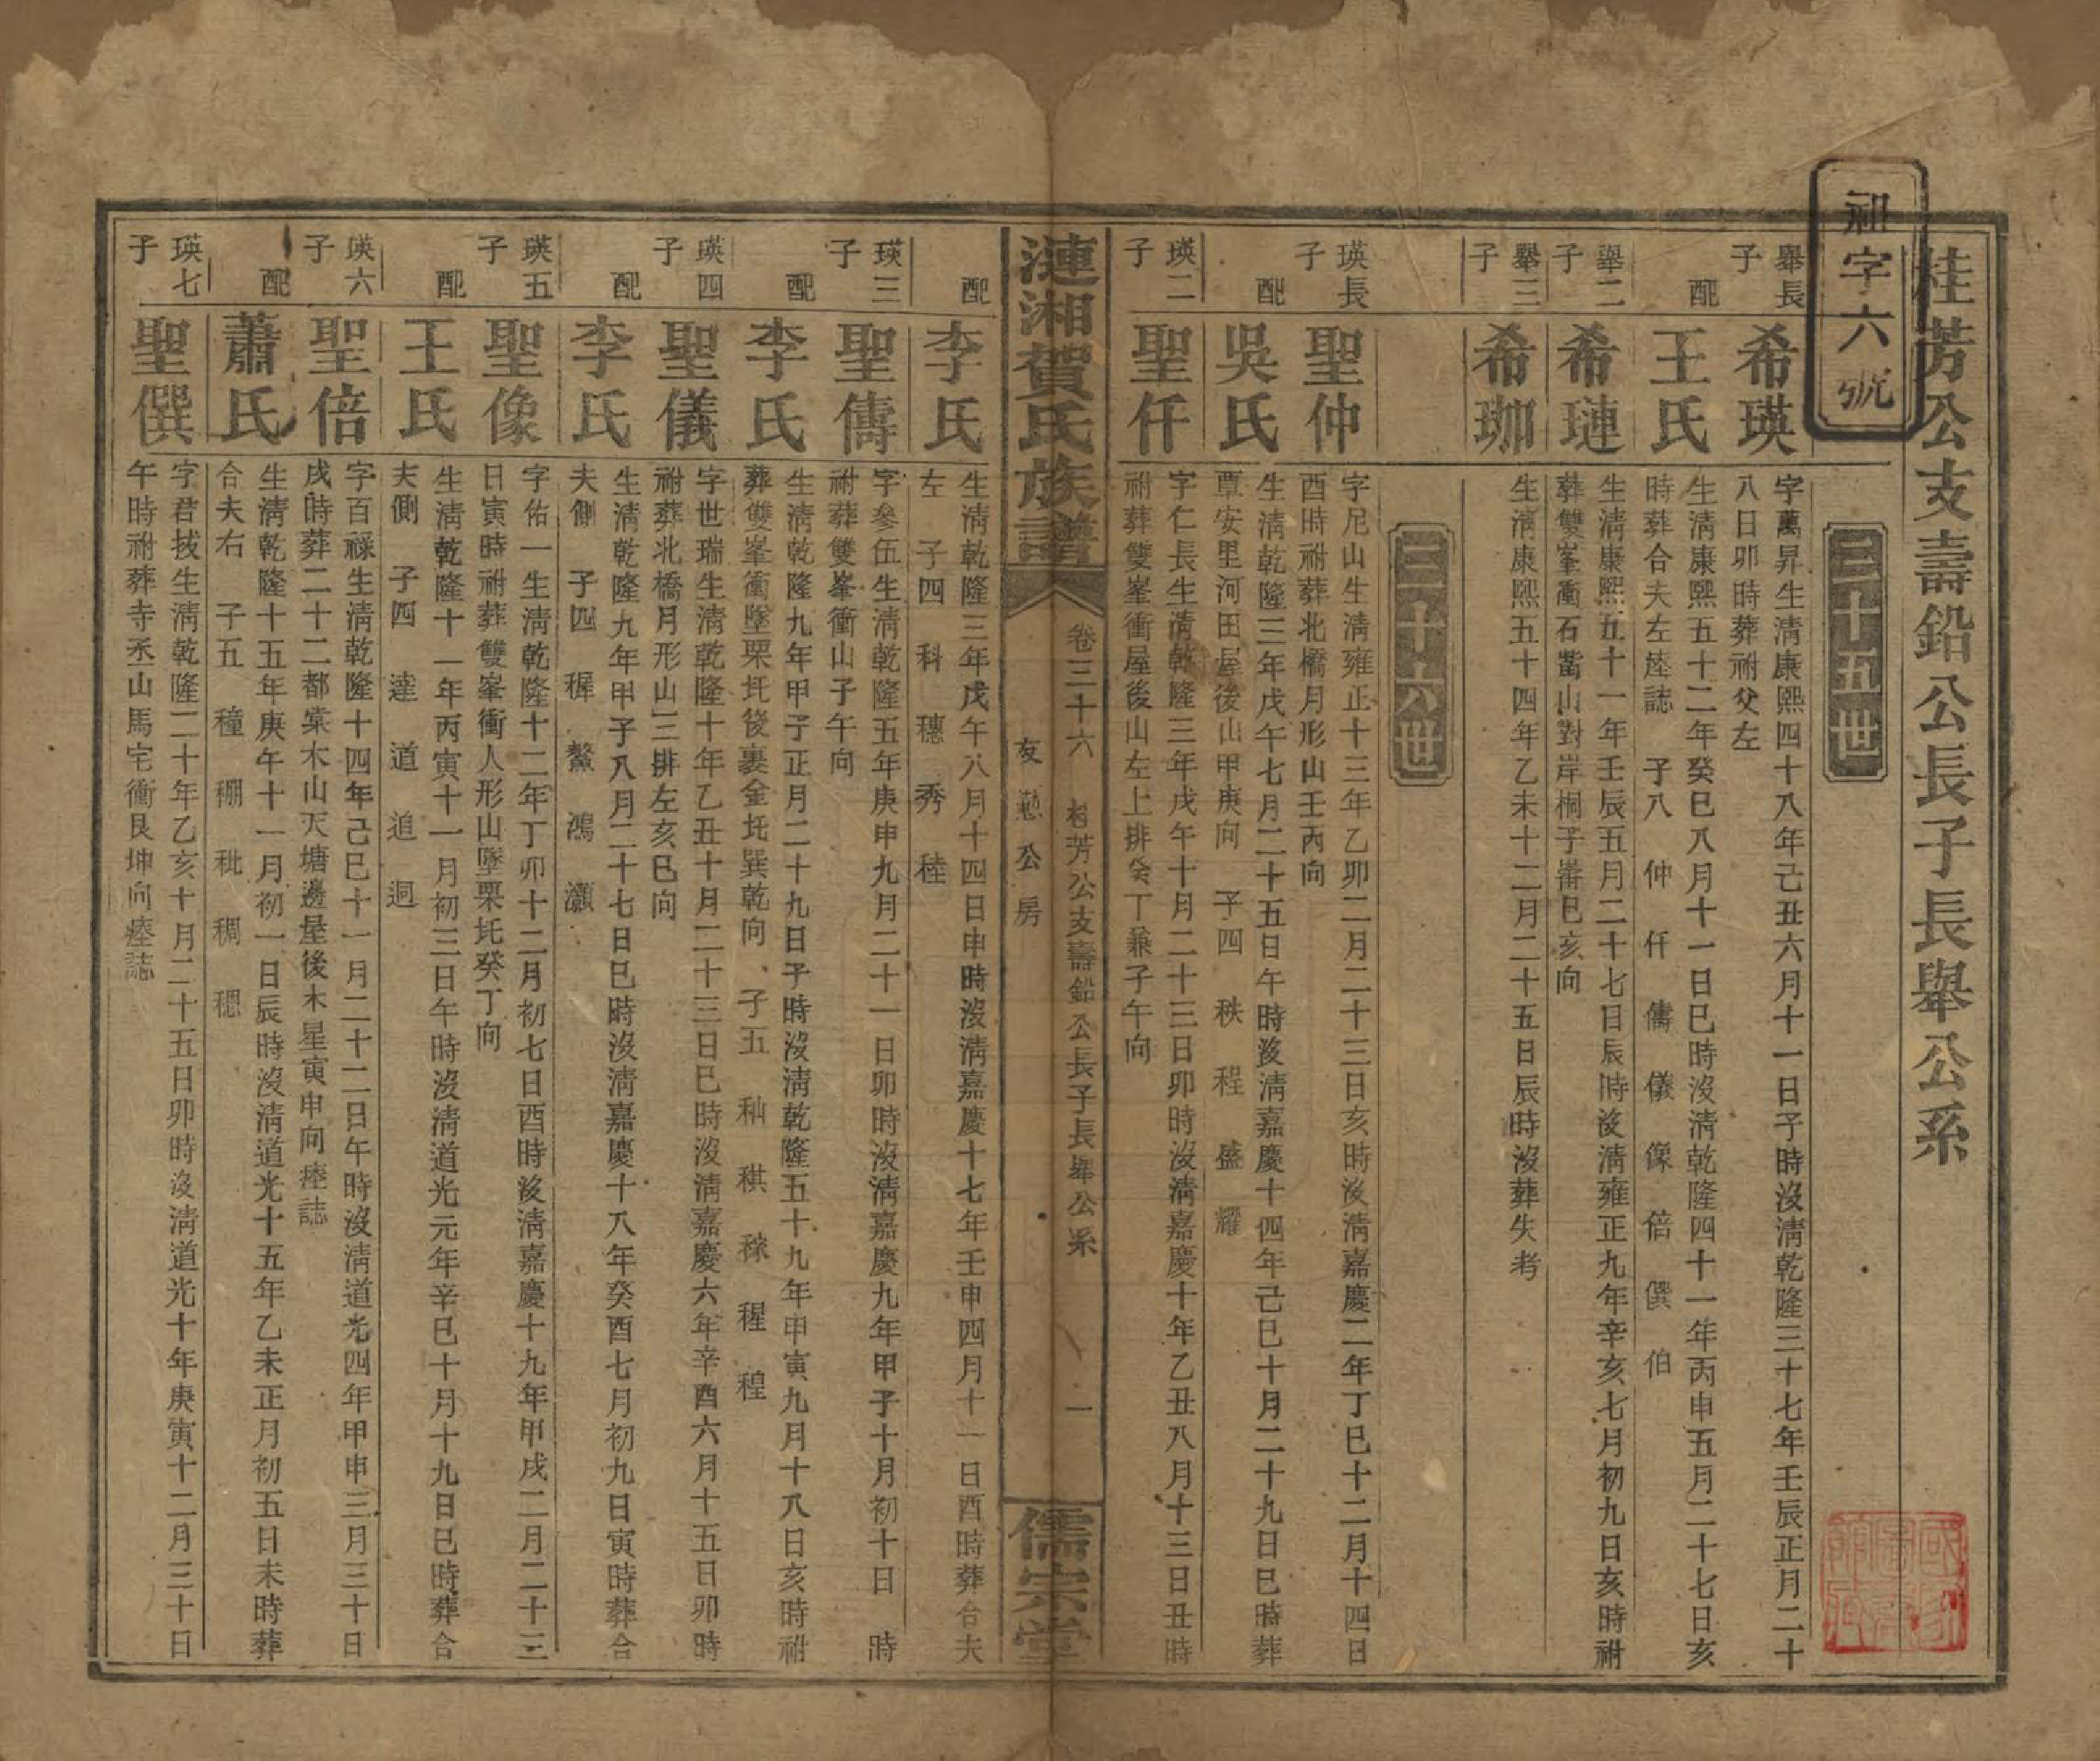 桂芳公支壽鉛公長子長舉公系
字六號
三十五世
舉長子
希瑛
字萬昇生淸康熙四十八年己丑六月十一日子時沒淸乾隆三十七年壬辰正月二十
八日卯時葬祔父左
配
王氏
生淸康熙五十二年癸巳八月十一日巳時沒淸乾隆四十一年丙申五月二十七日亥
時葬合夫左塟誌 子八 仲 仟 儔 儀 像 倍 僎 伯
舉二子
希璉
生淸康熙五十一年壬辰五月二十七日辰時沒淸雍正九年辛亥七月初九日亥時祔
葬雙峯衝石嘴山對岸桐子崙巳亥向
舉三子
希珈
生淸康熙五十四年乙未十二月二十五日辰時沒葬失考
三十六世
瑛長子
聖仲
字尼山生淸雍正十三年乙卯二月二十三日亥時沒淸嘉慶二年丁巳十二月十四日
酉時祔葬北橋月形山壬丙向
配
吳氏
生淸乾隆三年戊午七月二十五日午時沒淸嘉慶十四年己巳十月二十九日巳時葬
覃安里河田屋後山甲庚向 子四 秩 程 盛 耀
瑛二子
聖仟
字仁長生淸乾隆三年戊午十月二十三日卯時沒淸嘉慶十年乙丑八月十三日丑時
祔葬雙峯衝屋後山左上排癸丁兼子午向
漣湘賀氏族譜
卷三十六 桂芳公支壽鉛公長子長舉公系 一
友懃公房
儒宗堂
配
李氏
生淸乾隆三年戊午八月十四日申時沒淸嘉慶十七年壬申四月十一日酉時葬合夫
左 子四 科 穗 秀 稑
瑛三子
聖儔
字參伍生淸乾隆五年庚申九月二十一日卯時沒淸嘉慶九年甲子十月初十日 時
祔葬雙峯衝山子午向
配
李氏
生淸乾隆九年甲子正月二十九日子時沒淸乾隆五十九年甲寅九月十八日亥時祔
葬雙峯衝墜栗托後裏金托巽乾向 子五 秈 稘 稼 稺 稑
瑛四子
聖儀
字世瑞生淸乾隆十年乙丑十月二十三日巳時沒淸嘉慶六年辛酉六月十五日卯時
祔葬北橋月形山三排左亥巳向
配
李氏
生淸乾隆九年甲子八月二十七日巳時沒淸嘉慶十八年癸酉七月初九日寅時葬合
夫側 子四 穉 鰲 鴻 灝
瑛五子
聖像
字佑一生淸乾隆十二年丁卯十二月初七日酉時沒淸嘉慶十九年甲戌二月二十三
日寅時祔葬雙峯衝人形山墜栗托癸丁向
配
王氏
生淸乾隆十一年丙寅十一月初三日午時沒淸道光元年辛巳十月十九日巳時葬合
夫側 子四 達 道 追 迥
瑛六子
聖倍
字百祿生淸乾隆十四年己巳十一月二十二日午時沒淸道光四年甲申三月三十日
戌時葬二十二都棠木山天塘邊屋後木星寅申向塟誌
配
蕭氏
生淸乾隆十五年庚午十一月初一日辰時沒淸道光十五年乙未正月初五日未時葬
合夫右 子五 穜 稝 秕 稠 穮
瑛七子
聖僎
字君拔生淸乾隆二十年乙亥十月二十五日卯時沒淸道光十年庚寅十二月三十日
午時祔葬寺丞山馬宅衝艮坤向塟誌